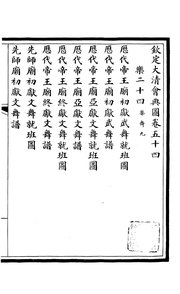 欽定大清會典圖卷五十四
樂二十四 樂舞九
歷代帝王廟初獻武舞就班圖
歷代帝王廟初獻武舞譜
歷代帝王廟亞獻文舞就班圖
歷代帝王廟亞獻文舞譜
歷代帝王廟終獻文舞就班圖
歷代帝王廟終獻文舞譜
先師廟初獻文舞就班圖
先師廟初獻文舞譜